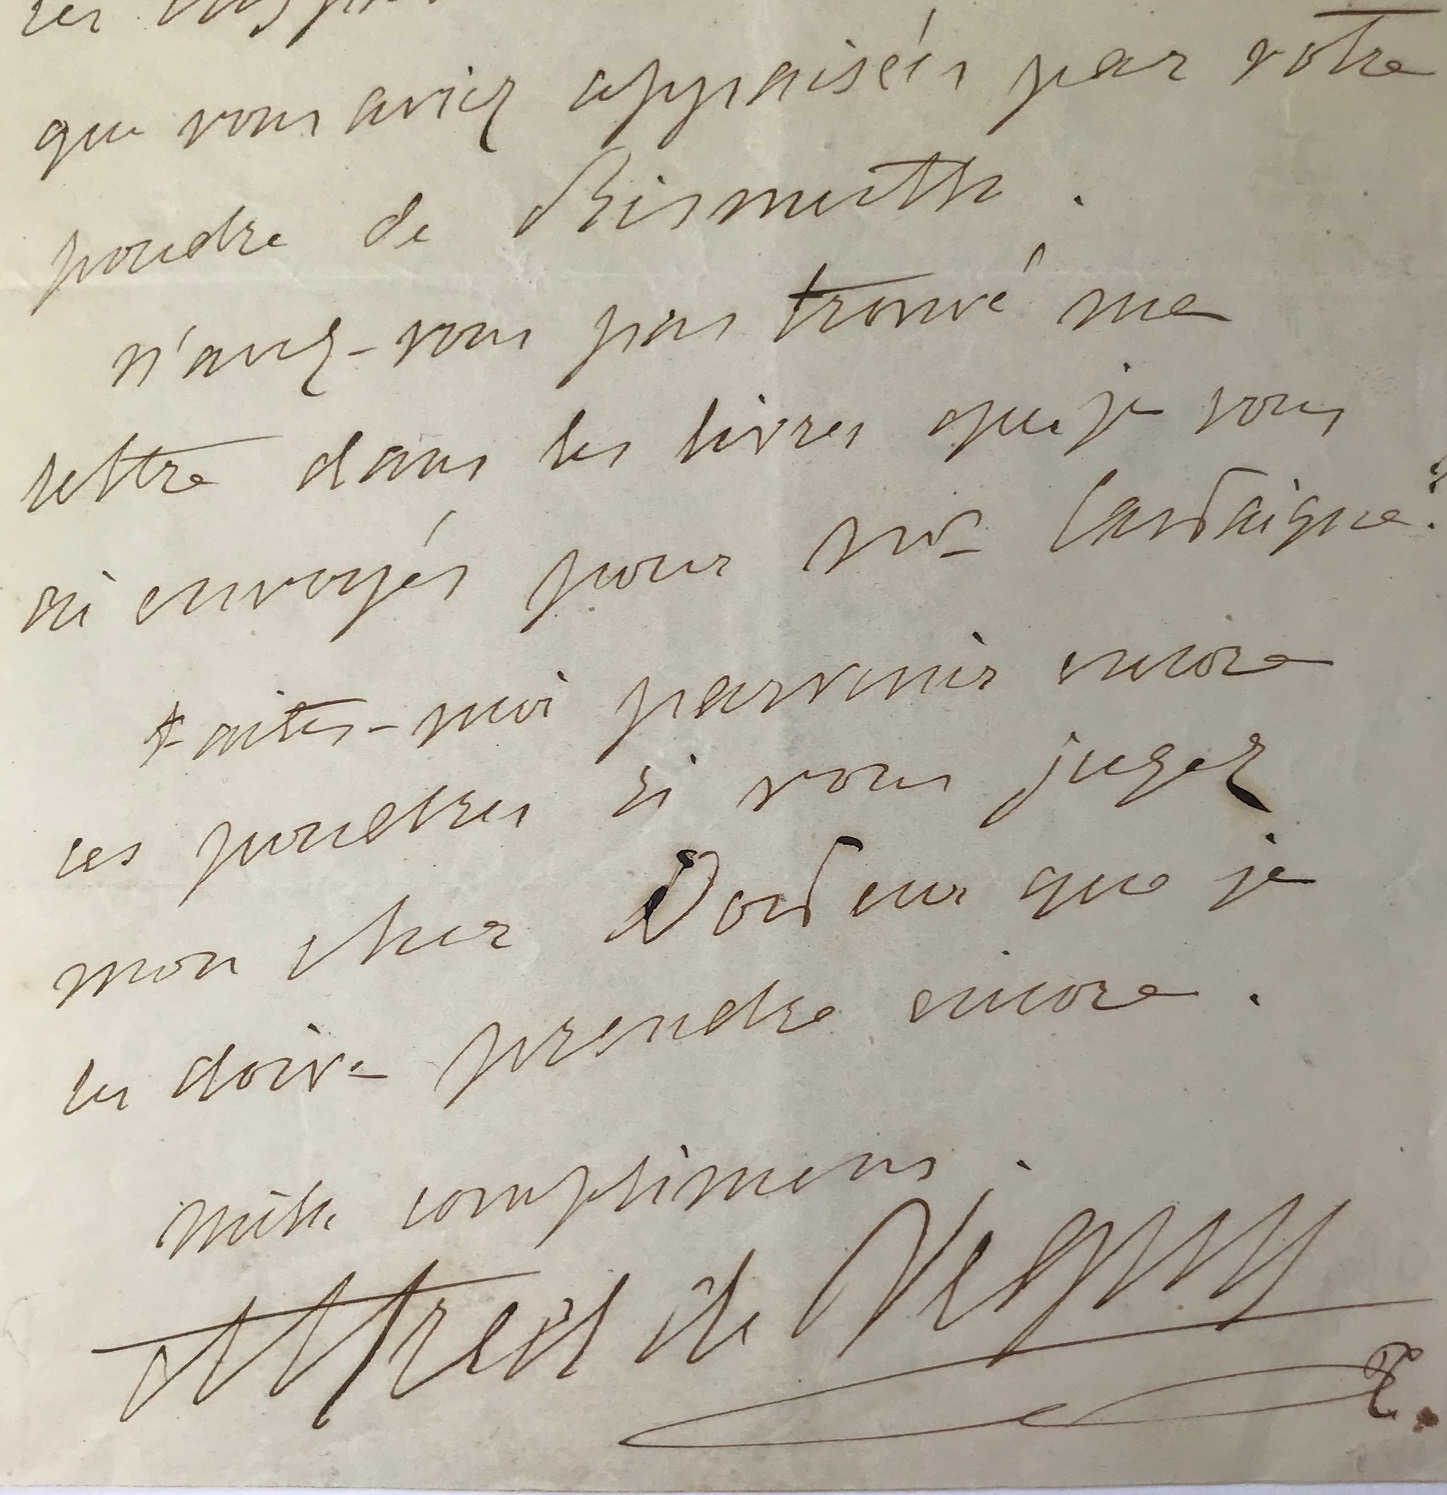 les
que vous aviez appaisées par votre
poudre de Bismuth .
n'avez-vous pas trouvé ma
lettre dans les livres que je vous
ai envoyés pour Mr Lardaigne ?
Faites-moi parvenir encore
ces poudres si vous jugez
mon cher Docteur que je
les doive prendre encore .
mille complimens .
Alfred de Vigny